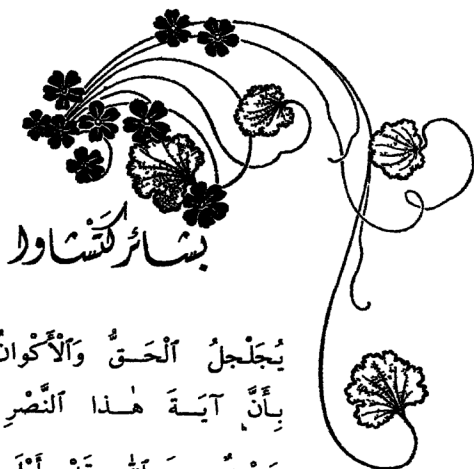 بشائر كَتْشَاوا
يُجَلْجِلُ ٱلْحَـقُّ وَٱلْأَكْوانُ
بِأَنَّ آيَـةَ هٰـذا ٱلنَّصْرِ